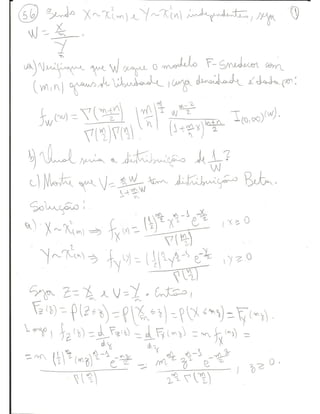 (56) Sendo X~χ²(m) e Y~χ²(n) independentes, seja ①
W = (X/m)/(Y/n).
a) Verifique que W segue o modelo F-Snedecor com
(m,n) graus de liberdade, cuja densidade é dada por:
f_W(w) = Γ((m+n)/2)/(Γ(m/2)Γ(n/2)) (m/n)^(m/2) w^((m-2)/2)/(1+(m/n)x)^((m+n)/2) I_(0,∞)(w).
b) Qual seria a distribuição de 1/W?
c) Mostre que V = (m/n)W/(1+(m/n)W) tem distribuição Beta.
Solução:
a) X~χ²(m) ⇒ f_X(x) = (1/2)^(m/2) x^(m/2-1) e^(-x/2)/Γ(m/2), x≥0
Y~χ²(n) ⇒ f_Y(y) = (1/2)^(n/2) y^(n/2-1) e^(-y/2)/Γ(n/2), y≥0
Seja Z = X/m e U = Y/n. Então,
F_Z(z) = P(Z≤z) = P(X/m≤z) = P(X≤mz) = F_X(mz).
Logo, f_Z(z) = d/dz F_Z(z) = d/dz F_X(mz) = m f_X(mz) =
= m (1/2)^(m/2) (mz)^(m/2-1) e^(-mz/2)/Γ(m/2) = m^(m/2) z^(m/2-1) e^(-mz/2)/(2^(m/2) Γ(m/2)), z≥0.